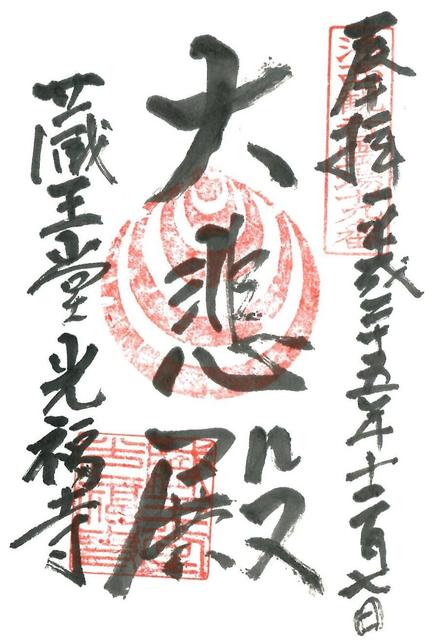 奉拝 平成二十五年十二月七日
大悲殿
蔵王堂光福寺